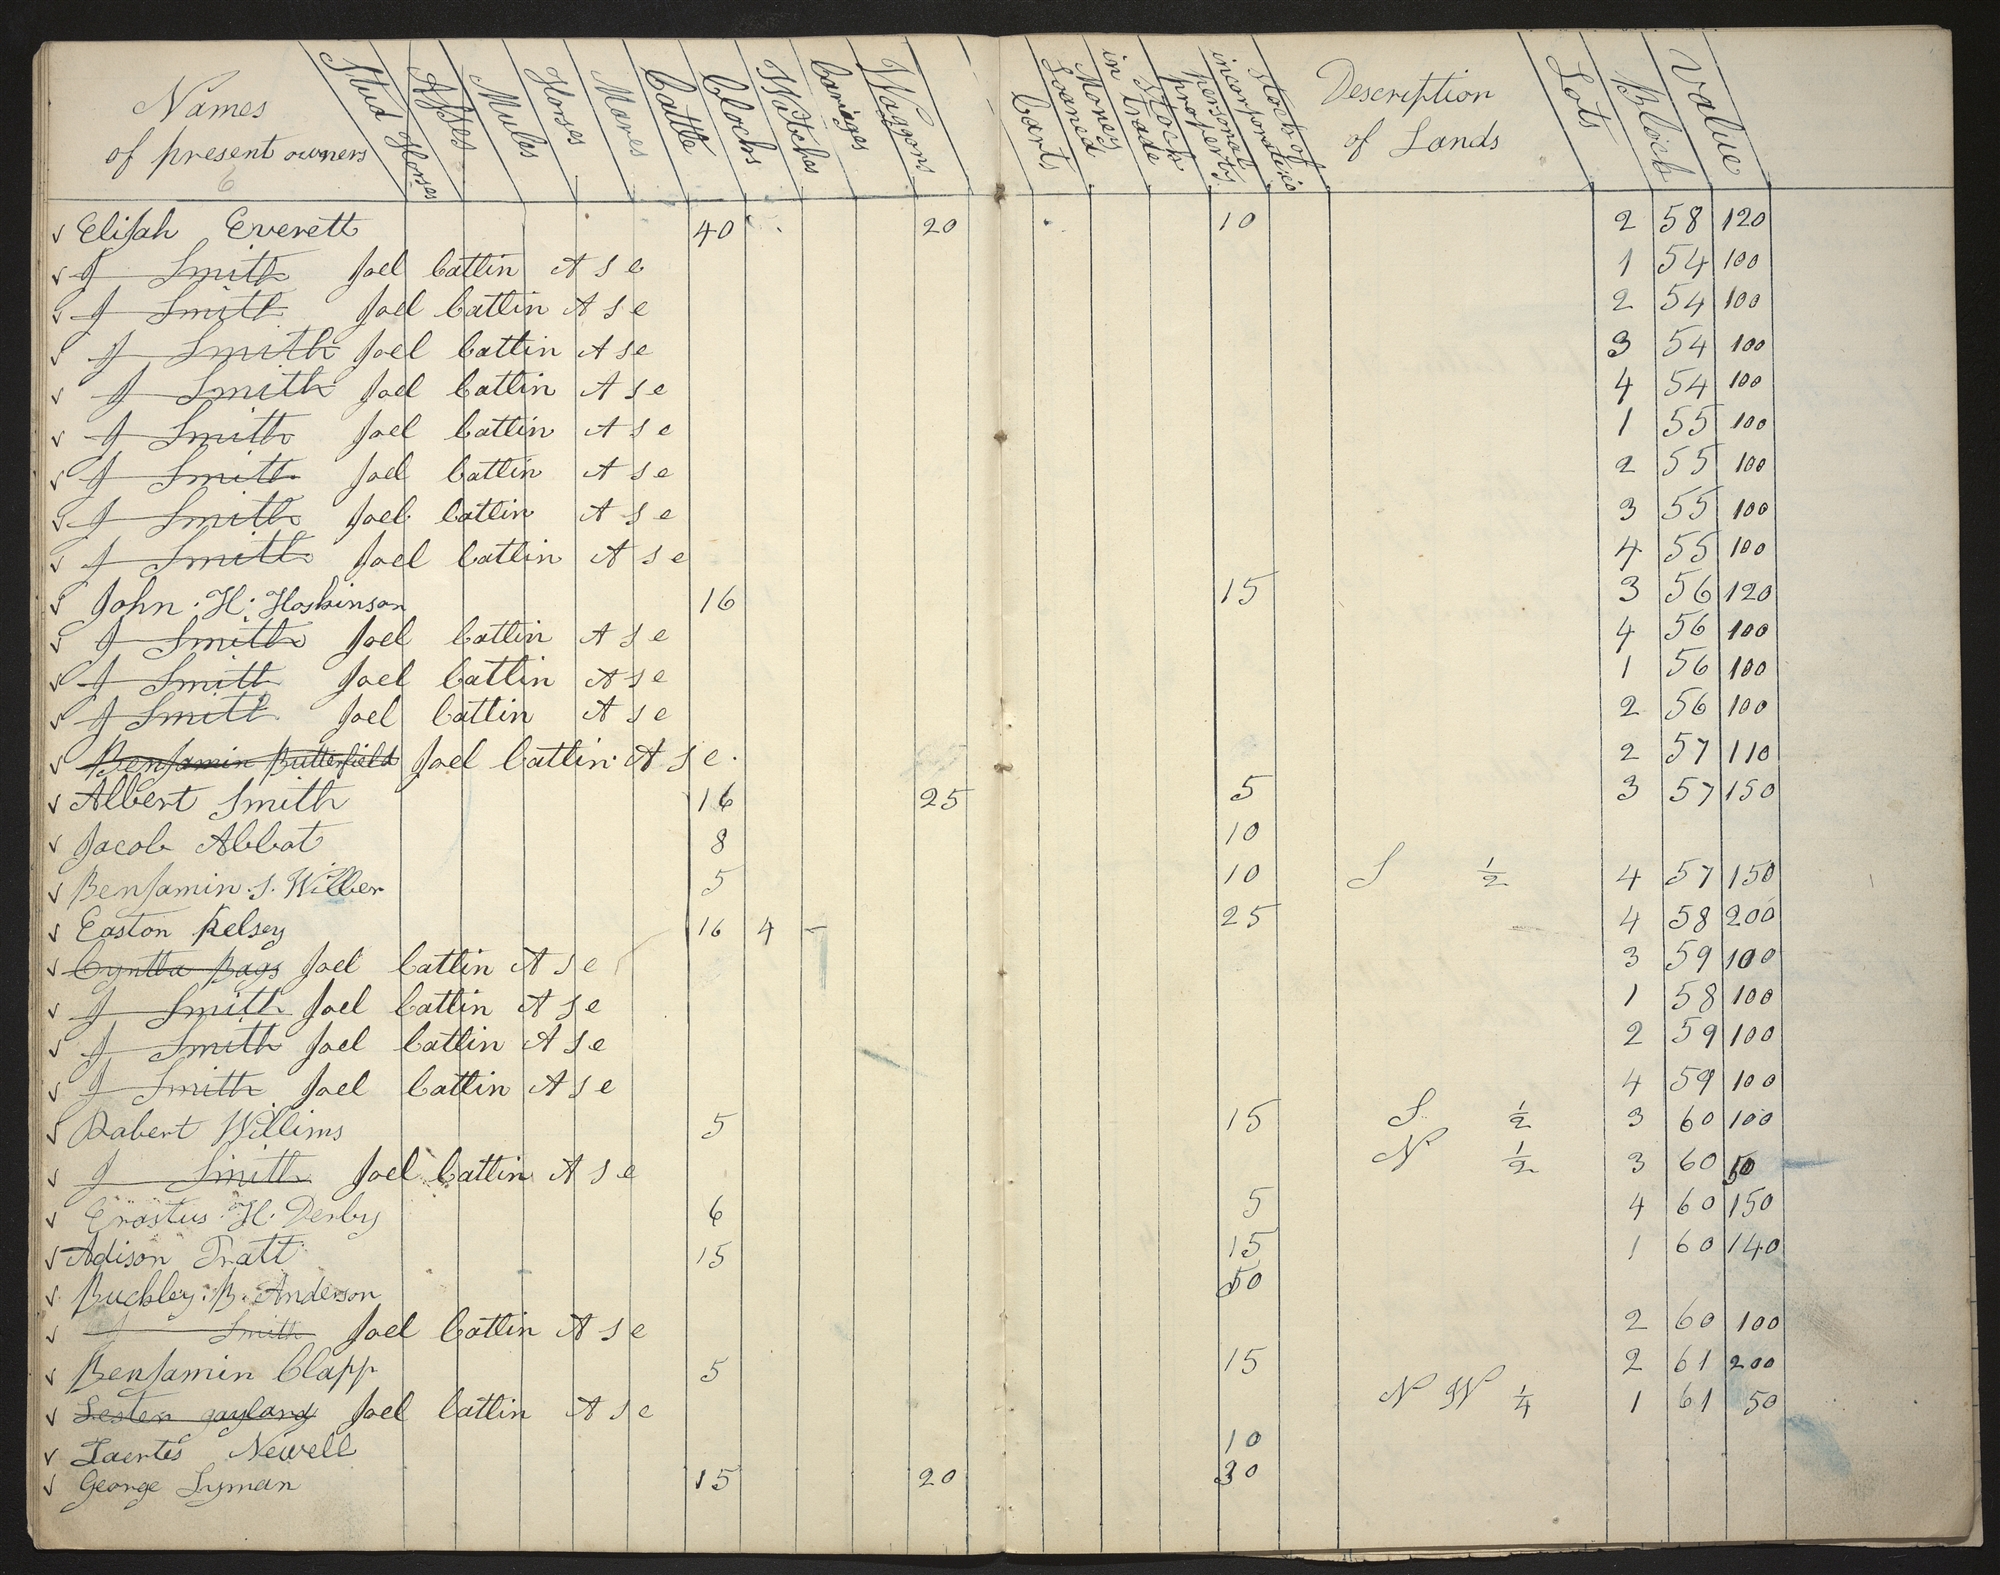 Names of present owners Stud Horses Asses Mules Horses Mares Cattle Clocks Watches Cariages Waggons Cart Money Loaned Stock in trade personal property Stock of incorporateies Description of Lands Lots Block Value
6
√ Elijah Everett 40 20 10 2 58 120
√ J Smith Joel Catlin A s e 1 54 100
√ J Smith Joel Catlin A s e 2 54 100
√ J Smith Joel Catlin A s e 3 54 100
√ J Smith Joel Catlin A s e 4 54 100
√ J Smith Joel Catlin A s e 1 55 100
√ J Smith Joel Catlin A s e 2 55 100
√ J Smith Joel Catlin A s e 3 55 100
√ J Smith Joel Catlin A s e 4 55 100
√ John . H . Hoskinson 16 15 3 56 120
√ J Smith Joel Catlin A s e 4 56 100
√ J Smith Joel Catlin A s e 1 56 100
√ J Smith Joel Catlin A s e 2 56 100
√ Benjamin Butterfield Joel Catlin A s e . 2 57 110
√ Albert Smith 16 25 5 3 57 150
√ Jacob Abbot 8 10
√ Benjamin . S . Wilber 5 10 S 1/2 4 57 150
√ Easton Kelsey 16 4 25 4 58 200
√ Cyntha Bags Joel Catlin A s e 3 59 100
√ J Smith Joel Catlin A s e 1 58 100
√ J Smith Joel Catlin A s e 2 59 100
√ J Smith Joel Catlin A s e 4 59 100
√ Robert Willims 5 15 S 1/2 3 60 100
√ J Smith Joel Catlin A s e N 1/2 3 60 50
√ Erastus . H . Derby 6 5 4 60 150
√ Adison Pratt 15 15 1 60 140
√ Buckley . B . Anderson 50
√ J Smith Joel Catlin A s e 2 60 100
√ Benjamin Clapp 5 15 2 61 200
√ Lester gaylord Joel Catlin A s e N W 1/4 1 61 50
√ Laertes Newell 10
√ George Lyman 15 20 30